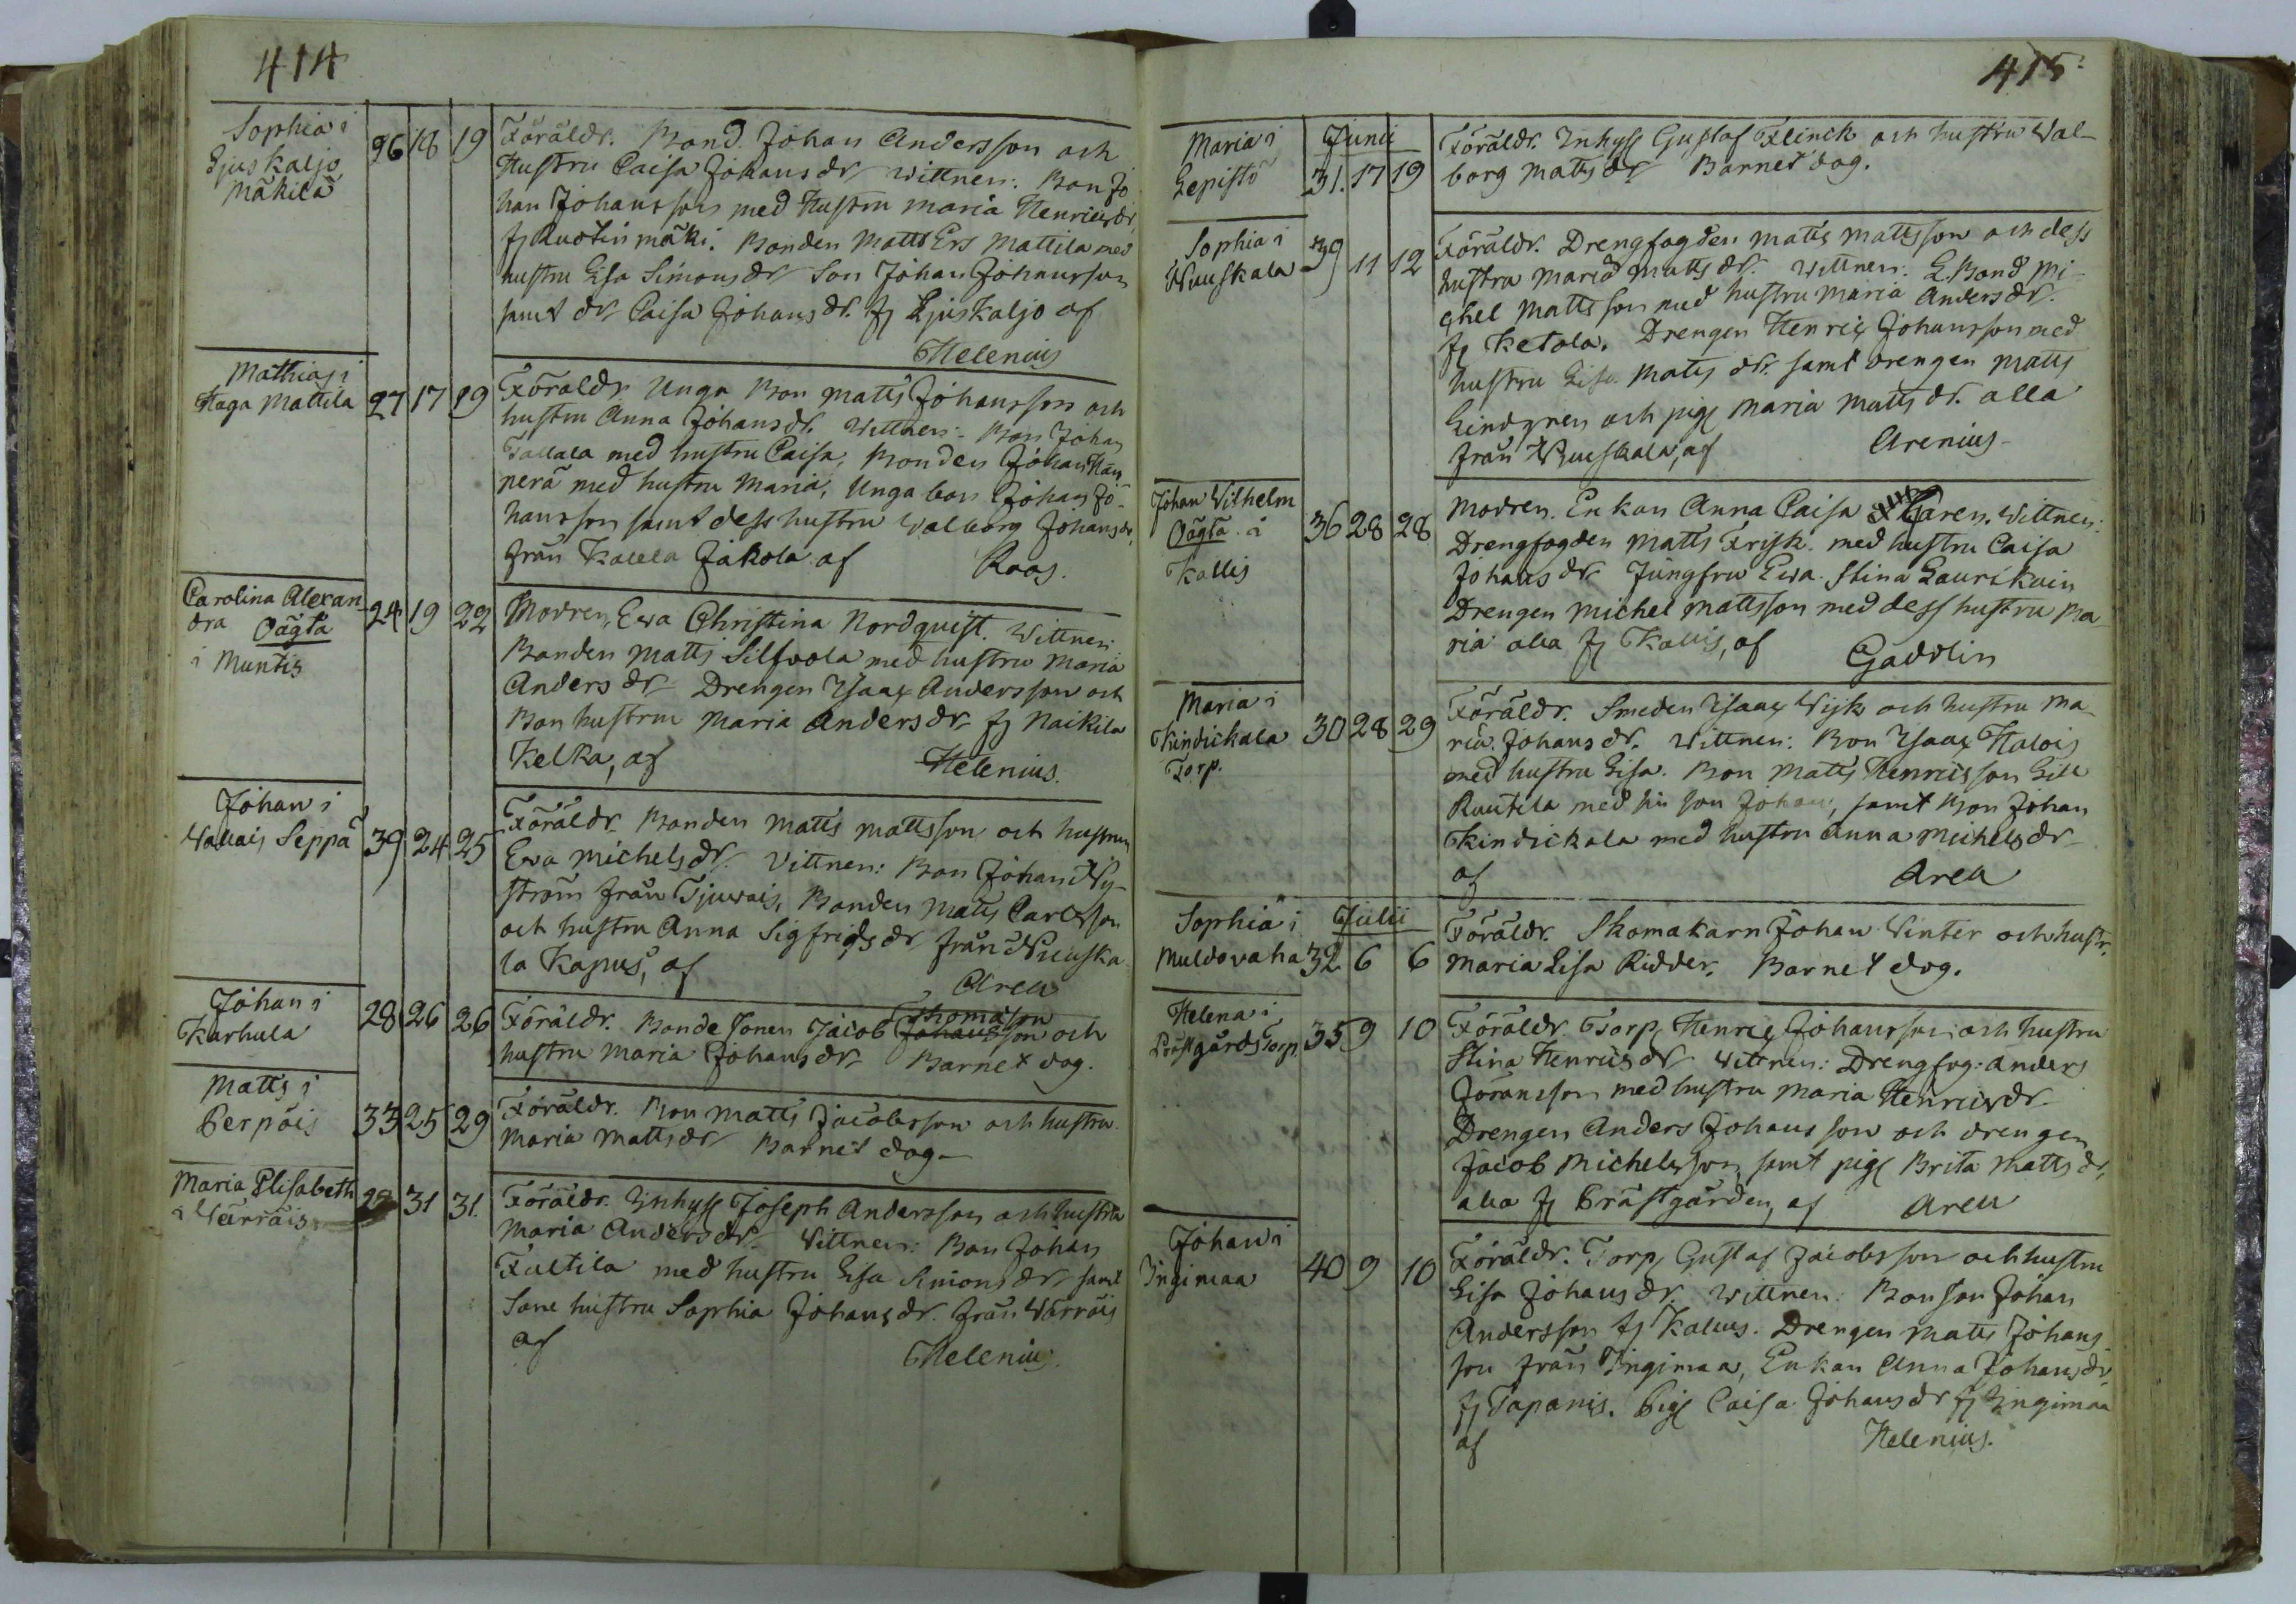 414
Sophia i
Ljuskaljo
Mäkilä
26 18 19
Föräldr. Bond. Johan Andersson och
Hustru Caisa Johansdr wittnen: Bon Jo
han Johansson med Hustru Maria Henricsdr,
fr Ruotinmäki. Bonden Matts Ers Mattila med
hustru Lisa Simonsdr Son Johan Johansson
samt dr Caisa Johansdr. fr Ljuskaljo af
Helenius
Mathias i
Haga Mattila
27 17 19
Föräldr. Unga Bon Matts Johansson och
hustru Anna Johansdr. Wittnen: Bon Johan
Tallala med hustru Caisa, Bonden Johan Hän
nerä med hustru Maria, Unga bon Johan Jo-
hansson samt dess hustru Walborg Johansdr,
från Kalela Jakola af Roos.
Carolina Alexan
dra Oägta
i Muntis
24 19 22
Modren, Ewa Christina Nordquist. Wittnen:
Bonden Matts Silfvola med hustru Maria
Andersdr Drengen Isaac Andersson och
Bon hustrun Maria Andersdr fr Naikila
Kelka, af Helenius.
Johan i
Wallais Seppä
39 24 25
Föräldr. Bonden Matts Mattsson och hustru
Ewa Michelsdr. Vittnen: Bon Johan Ny-
ström från Tjuvais, Bonden Matts Carlsson
och hustru Anna Sigfridsdr från Wuuska
la Kapus, af
Area
Johan i
Karhula
28 26 26
Thomasson
Föräldr. Bondesonen Jacob Johansson och
hustru Maria Johansdr Barnet dog.
Matts i
Perpöis
33 25 29
Föräldr. Bon Matts Jacobsson och hustru
Maria Mattsdr Barnet dog.
Maria Elisabeth
i Wärräis
31 31.
Föräldr. Inhyss Joseph Andersson och hustru
Maria Andersdr. Vittnen: Bon Johan
Fultila med hustru Lisa Simonsdr samt
Sone hustru Sophia Johansdr. från Wärräis
af
Helenius.
415
Maria i
Lepistö
Junii
31. 17 19
Föräldr. Inhyss Gustaf Flinck och hustru Wal-
borg Mattsdr Barnet dog.
Sophia i
Wuuskala
39 11 12
Föräldr. Drengfogden Matts Mattsson och dess
hustru Maria Mattsdr. Wittnen: L. Bond Mi-
chel Mattsson med hustru Maria Andersdr.
fr Ketola. Drengen Henric Johansson med
hustru Lisa Mattsdr. samt drengen Matts
Lindgren och pig Maria Mattsdr. alla
från Wuuskala, af Arenius
Johan Wilhelm
Oägta å
Kallis
36 28 28
Modren. Enkan Anna Caisa Wittnen:
Drengfogden Matts Frisk. med hustru Caisa
Johansdr Jungfru Ewa Stina Laurikain
Drengen Michel Mattsson med dess hustru Ma
ria alla fr Kallis, af Gaddlin
Maria i
Kindickala
Torp.
30 28 29
Föräldr. Smeden Isaac Wijk och hustru Ma-
ria Johansdr. Wittnen: Bon Isaac Halois
med hustru Lisa. Bon Matts Henricsson Lill
Ruutila med sin son Johan, samt Bon Johan
Kindickala med hustru Anna Michelsdr
af Area
Sophia i
Muldovaha
Julii
32 6 6
Föräldr. Skomakarn Johan Winter och hustr.
Maria Lisa Ridder. Barnet dog.
Helena i
Prästgårds Torp
35 9 10
Föräldr. Torp Henric Johansson och hustru
Stina Henricsdr Wittnen: Drengfog: Anders
Joransson med hustru Maria Henricsdr
Drengen Anders Johansson och drengen
Jacob Michelsson, samt pig Brita Mattsdr,
alla fr Prästgården, af Area
Johan i
Ingimaa
40 9 10
Föräldr. Torp Gustaf Jacobsson och hustru
Lisa Johansdr. Wittnen: Bonson Johan
Andersson fr Kallus. Drengen Matts Johans-
son från Ingimaa, Enkan Anna Johansdr,
fr Tapanis. Pig Caisa Johansdr fr Ingimaa
af Helenius.